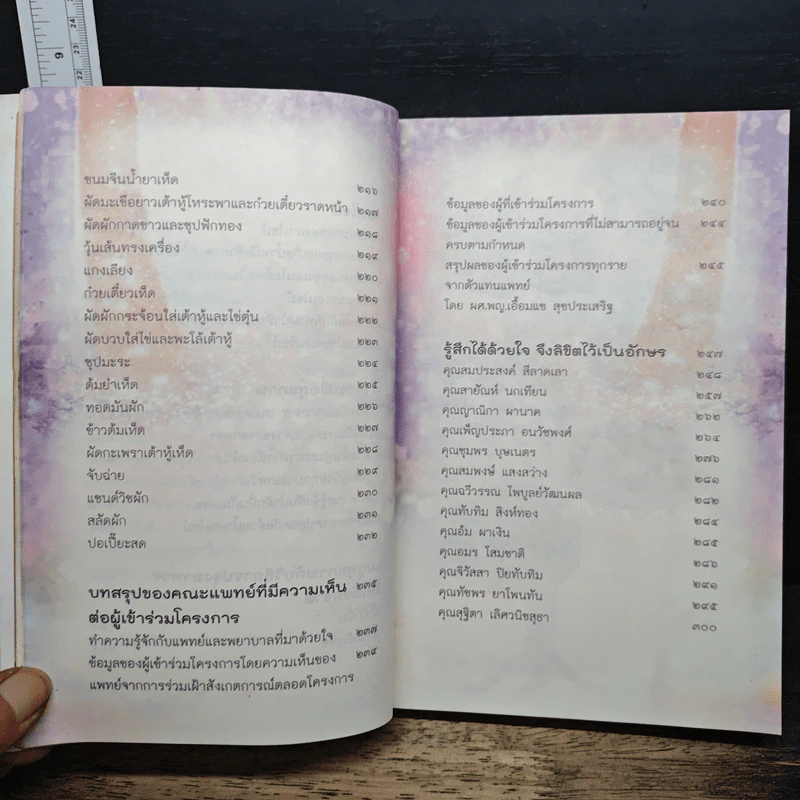 9
24
23
22
ขนมจีนน้ำยาเห็ด ๒๑๖
ผัดมะเขือยาวเต้าหู้โหระพาและก๋วยเตี๋ยวราดหน้า ๒๑๗
ผัดผักกาดขาวและซุปฟักทอง ๒๑๘
วุ้นเส้นทรงเครื่อง ๒๑๙
แกงเลียง ๒๒๐
ก๋วยเตี๋ยวเห็ด ๒๒๑
ผัดผักกระจ้อนใส่เต้าหู้และไข่ตุ๋น ๒๒๒
ผัดบวบใส่ไข่และพะโล้เต้าหู้ ๒๒๓
ซุปมะระ ๒๒๔
ต้มยำเห็ด ๒๒๕
ทอดมันผัก ๒๒๖
ข้าวต้มเห็ด ๒๒๗
ผัดกะเพราเต้าหู้เห็ด ๒๒๘
จับฉ่าย ๒๒๙
แซนด์วิชผัก ๒๓๐
สลัดผัก ๒๓๑
ปอเปี๊ยะสด ๒๓๒
บทสรุปของคณะแพทย์ที่มีความเห็น ๒๓๕
ต่อผู้เข้าร่วมโครงการ
ทำความรู้จักกับแพทย์และพยาบาลที่มาด้วยใจ ๒๓๗
ข้อมูลของผู้เข้าร่วมโครงการโดยความเห็นของ ๒๓๙
แพทย์จากการร่วมเฝ้าสังเกตการณ์ตลอดโครงการ
ข้อมูลของผู้ที่เข้าร่วมโครงการ ๒๔๐
ข้อมูลของผู้เข้าร่วมโครงการที่ไม่สามารถอยู่จน ๒๔๔
ครบตามกำหนด
สรุปผลของผู้เข้าร่วมโครงการทุกราย ๒๔๕
จากตัวแทนแพทย์
โดย ผศ.พญ.เอื้อมแข สุขประเสริฐ
รู้สึกได้ด้วยใจ จึงลิขิตไว้เป็นอักษร ๒๔๗
คุณสมประสงค์ สีลาดเลา ๒๔๘
คุณสายัณห์ นกเทียน ๒๕๗
คุณญาณิกา ผานาค ๒๖๒
คุณเพ็ญประภา อนวัชพงศ์ ๒๖๔
คุณชุมพร บุษเนตร ๒๗๖
คุณสมพงษ์ แสงสว่าง ๒๘๑
คุณฉวีวรรณ ไพบูลย์วัฒนผล ๒๘๒
คุณทับทิม สิงห์ทอง ๒๘๔
คุณอ้ม ผาเงิน ๒๘๕
คุณอมร โสมชาติ ๒๘๖
คุณจิวัสสา ปิยทับทิม ๒๙๑
คุณทัชพร ยาโพนทัน ๒๙๕
คุณสุฐิตา เลิศวนิชสุธา ๓๐๐